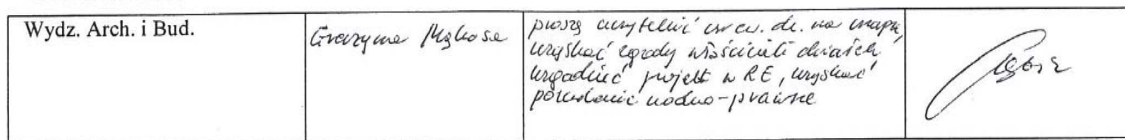 Wydz. Arch. i Bud.
Grażyna Mąkosa
proszę uczytelnić ew. dz. na mapie,
uzyskać zgody właścicieli działek
uzgodnić projekt w RE, uzyskać
pozwolenie wodno-prawne